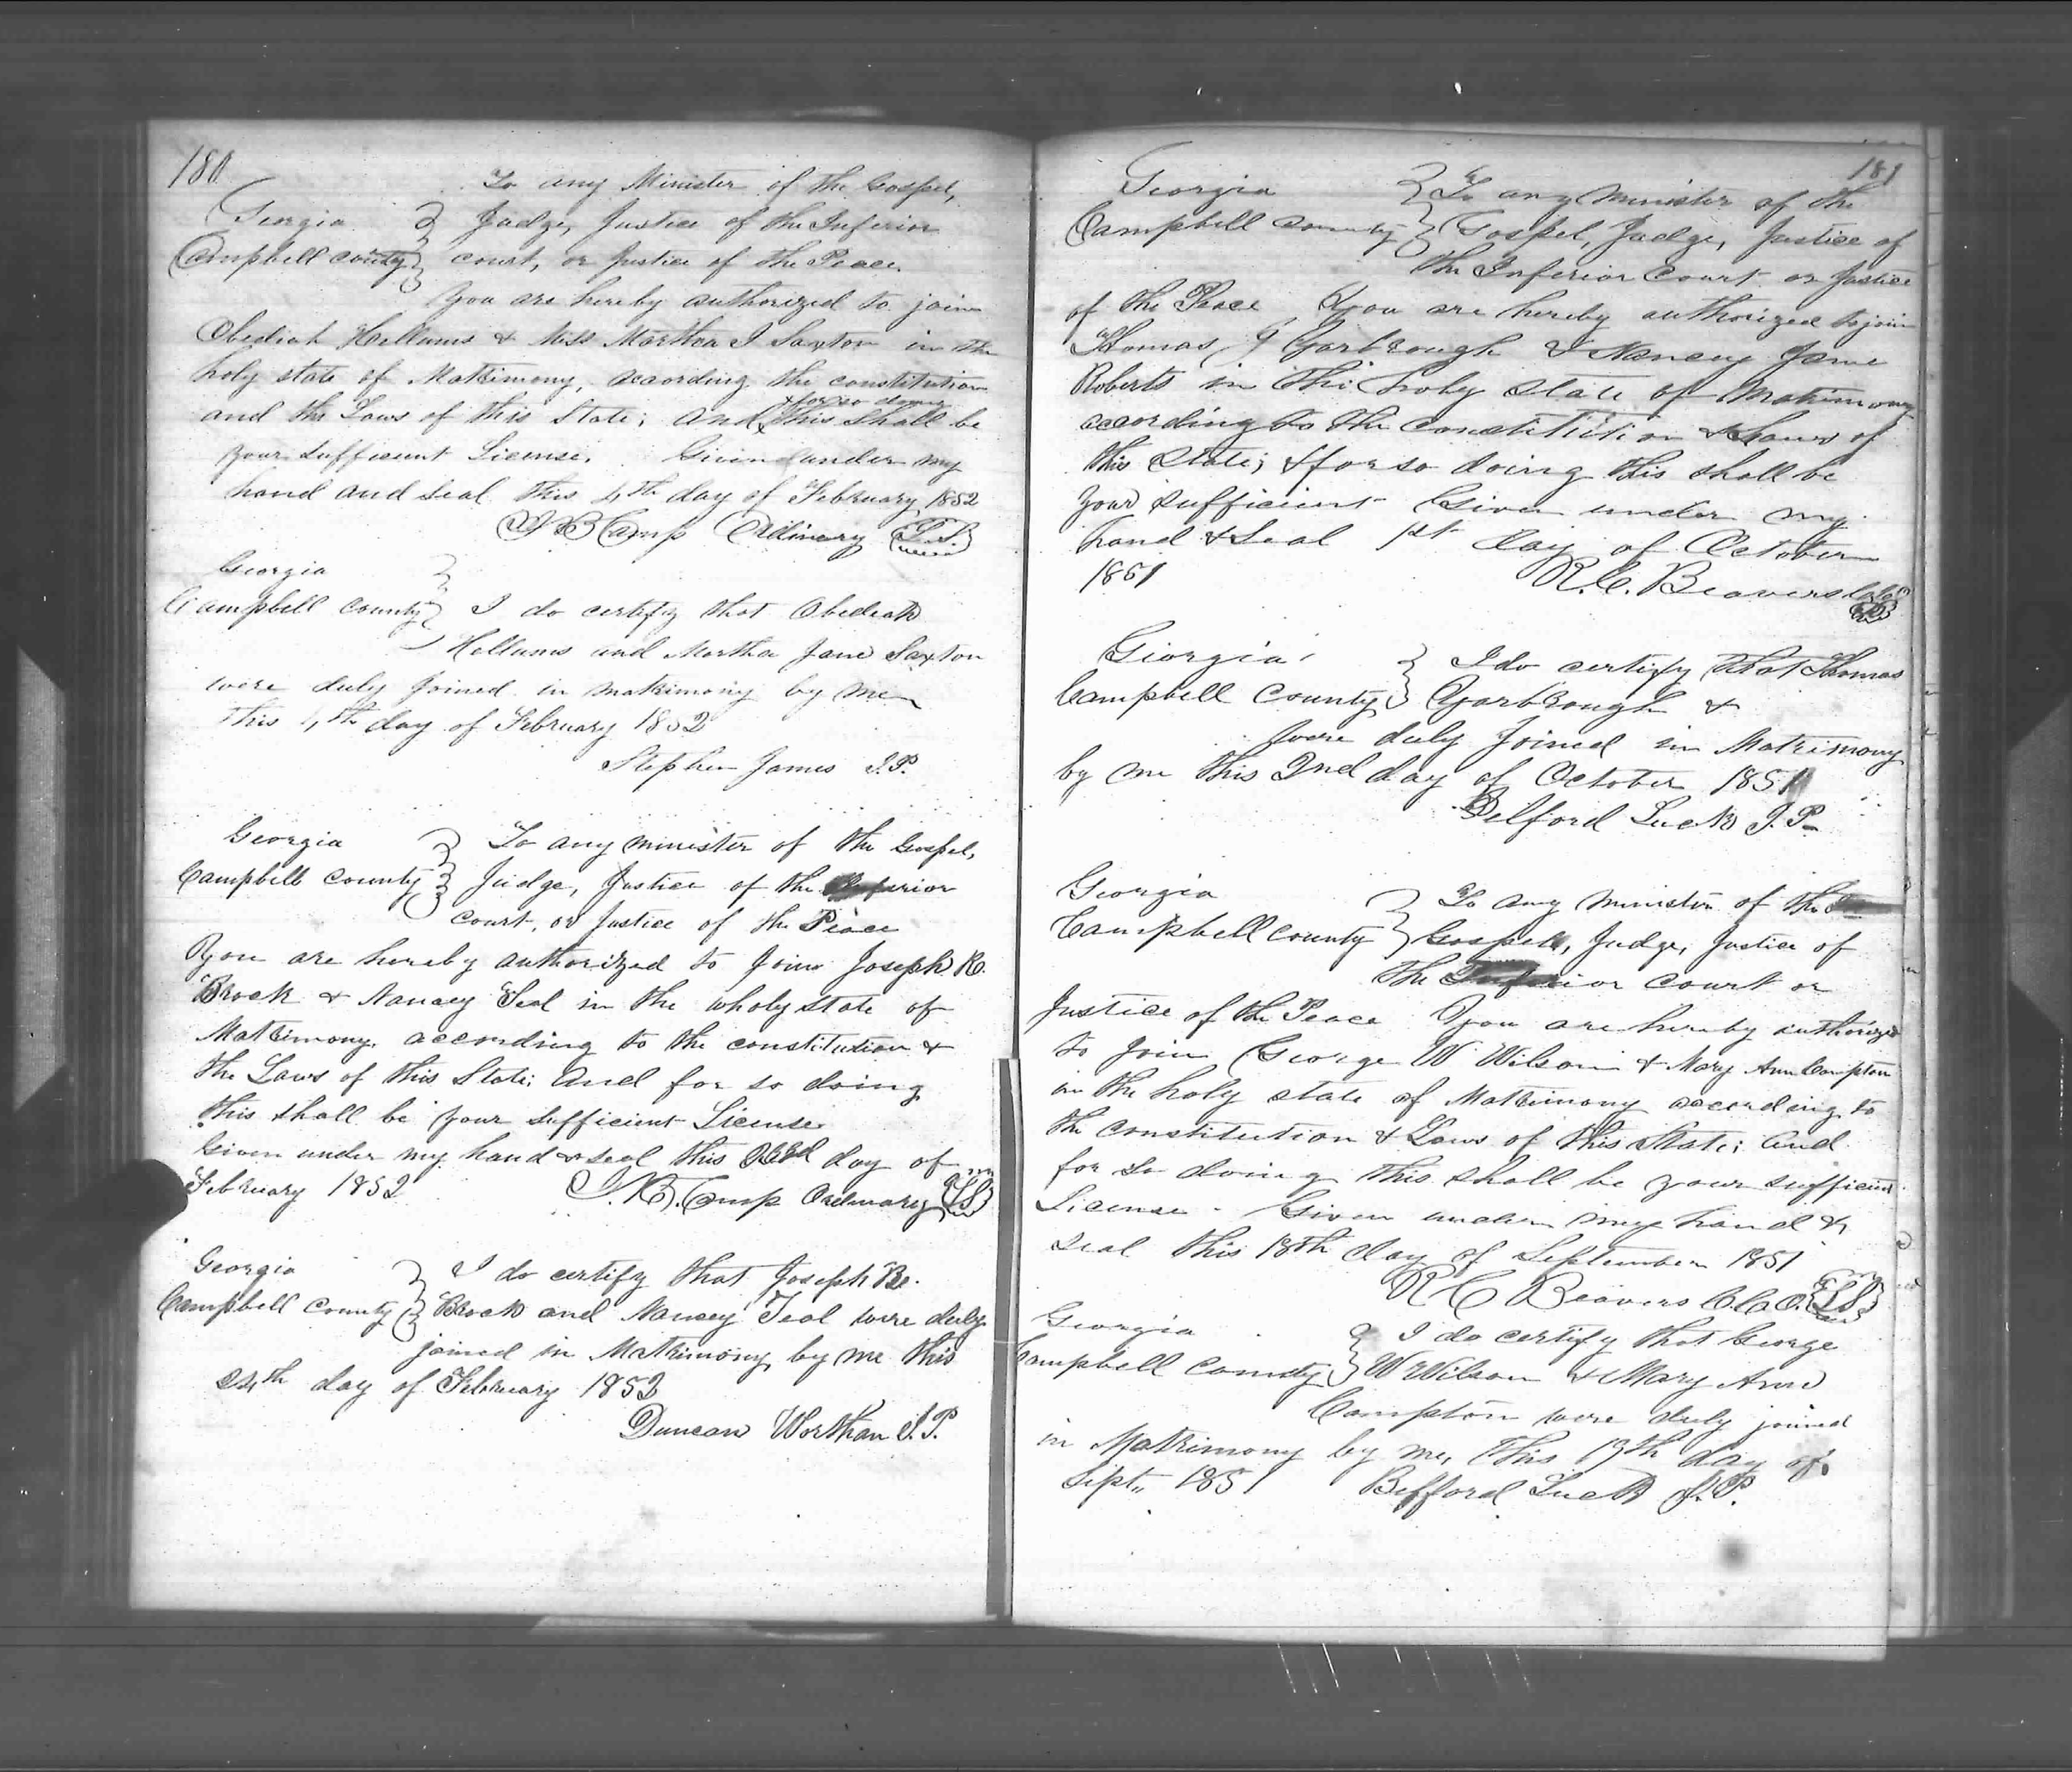 180
To any Minister of the Gospel,
Georgia Judge, Justice of the Inferior
Campbell county court, or Justice of the Peace.
You are hereby authorized to join
Obediah Hellums & Miss Martha J Saxton in the
holy state of Matrimony, according the constitution
& for so doing
and the Laws of this State; and this shall be
your sufficient License. Given under my
hand and seal this 4th day of February 1852
J B Camp Ordinary L.S.
Georgia
Campbell county I do certify that Obediah
Hellums and Martha Jane Saxton
were duly joined in matrimony by me
this 4th day of February 1852
Stephen James J.P.
Georgia To any minister of the Gospel,
Campbell county Judge, Justice of the Inferior
court, or Justice of the Peace
You are hereby authorized to join Joseph R.
Brock & Nancy Teal in the wholy state of
Matrimony, according to the constitution &
the Laws of this State; and for so doing
this shall be your sufficient License
Given under my hand & seal this day of
February 1852 J.B. Camp Ordinary LS
Georgia I do certify that Joseph
Campbell county Brock and Nancy Teal were duly
joined in Matrimony by me this
24th day of February 1852
Duncan Worthan J.P.
181
Georgia To any minister of the
Campbell county Gospel, Judge, Justice of
the Inferior Court or Justice
of the Peace You are hereby authorized to join
Thomas Yarbrough & Nancy Jane
Roberts in the holy state of Matrimony
according to the Constitution & Laws of
this State; & for so doing this shall be
your sufficient Given under my
hand & Seal 1st day of October
1851 R.C. Beavers
Georgia I do certify that Thomas
Campbell County Yarbrough &
were duly joined in Matrimony
by me this 2nd day of October 1851
Belford Luck J.P.
Georgia To any minister of the
Campbell county Gospel, Judge, Justice of
the Inferior court or
Justice of the Peace You are hereby authorized
to join George W Wilson & Mary Ann Compton
in the holy state of Matrimony according to
the constitution & Laws of this State; and
for so doing this shall be your sufficient
License. Given under my hand &
seal this 18th day of September 1851
R C Beavers C.C.O. LS
Georgia I do certify that George
Campbell County W Wilson & Mary Ann
Campton were duly joined
in Matrimony by me, this day of
Sept,, 1851 Belford Luck J.P.